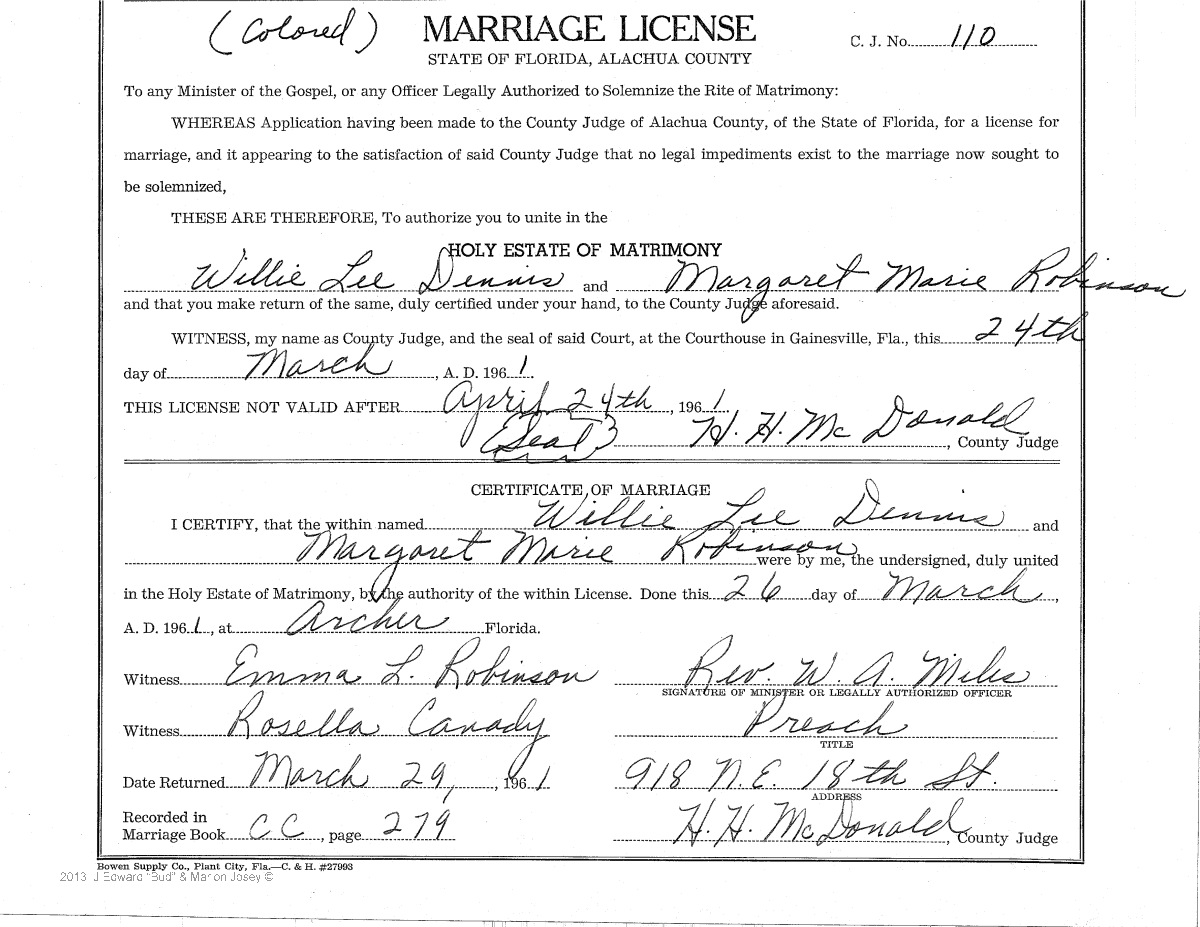 (Colored) MARRIAGE LICENSE C. J. No. 110
STATE OF FLORIDA, ALACHUA COUNTY
To any Minister of the Gospel, or any Officer Legally Authorized to Solemnize the Rite of Matrimony:
WHEREAS Application having been made to the County Judge of Alachua County, of the State of Florida, for a license for
marriage, and it appearing to the satisfaction of said County Judge that no legal impediments exist to the marriage now sought to
be solemnized,
THESE ARE THEREFORE, To authorize you to unite in the
HOLY ESTATE OF MATRIMONY
Willie Lee Dennis and Margaret Marie Robinson
and that you make return of the same, duly certified under your hand, to the County Judge aforesaid.
WITNESS, my name as County Judge, and the seal of said Court, at the Courthouse in Gainesville, Fla., this 24th
day of March, A. D. 1961.
THIS LICENSE NOT VALID AFTER April 24th, 1961.
(Seal) H. H. McDonald, County Judge
CERTIFICATE OF MARRIAGE
I CERTIFY, that the within named Willie Lee Dennis and
Margaret Marie Robinson were by me, the undersigned, duly united
in the Holy Estate of Matrimony, by the authority of the within License. Done this 26 day of March,
A. D. 1961, at Archer Florida.
Witness Emma L. Robinson Rev. W. A. Miles
SIGNATURE OF MINISTER OR LEGALLY AUTHORIZED OFFICER
Witness Rosella Canady Preach
TITLE
Date Returned March 29, 1961 918 N.E. 18th St.
ADDRESS
Recorded in
Marriage Book CC, page 279 H. H. McDonald, County Judge
Bowen Supply Co., Plant City, Fla.—C. & H. #27993
2013 J Edward "Bud" & Marion Josey ©